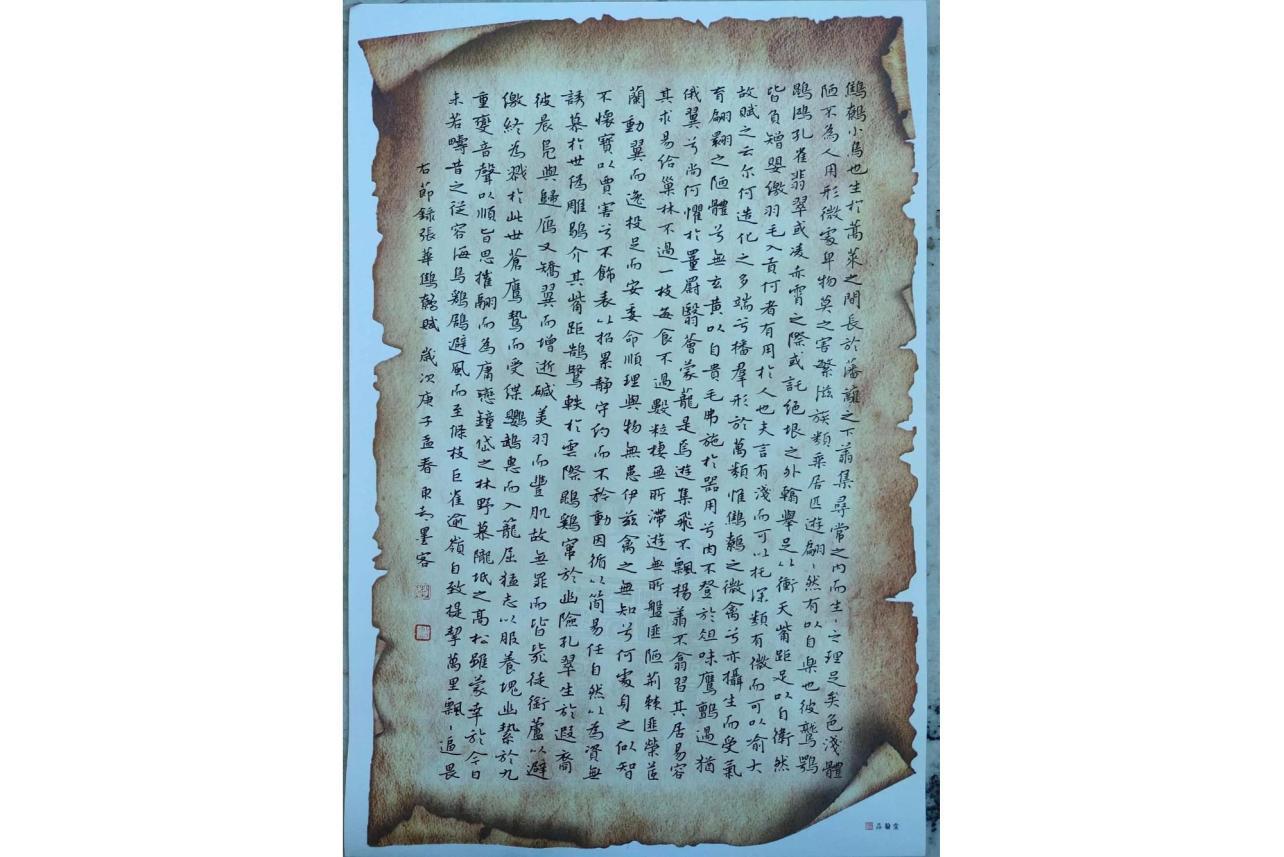 鷦鷯小鳥也生於蒿萊之間長於藩籬之下翥集尋常之內而生〻之理足矣色淺體
陋不為人用形微處卑物莫之害繁滋族類乘居匹遊翩〻然有以自樂也彼鷲鶚
鵾鴻孔雀翡翠或凌赤霄之際或託絕垠之外翰舉足以衝天觜距足以自衛然
皆負矰嬰繳羽毛入貢何者有用於人也夫言有淺而可以托深類有微而可以喻大
故賦之云尔何造化之多端兮播羣形於萬類惟鷦鷯之微禽兮亦攝生而受氣
育翩翾之陋體兮無玄黃以自貴毛弗施於器用兮肉不登於俎味鷹鸇過猶
俄翼兮尚何懼於罿罻翳薈蒙蘢是焉遊集飛不飄揚翥不翕習其居易容
其求易給巢林不過一枝每食不過數粒棲無所滯遊無所盤匪陋荊棘匪榮茝
蘭動翼而逸投足而安委命順理與物無患伊茲禽之無知兮何處身之似智
不懷寶以賈害兮不飾表以招累靜守約而不矜動因循以簡易任自然以為資無
誘慕於世偽雕鶡介其觜距鵠鷺軼於雲際鵾鷄竄於幽險孔翠生於遐裔
彼晨鳧與歸雁又矯翼而增逝咸美羽而豐肌故無罪而皆斃徒銜蘆以避
繳終為戮於此世蒼鷹鷙而受緤鸚鵡惠而入籠屈猛志以服養塊幽縶於九
重變音聲以順旨思摧翮而為庸戀鐘岱之林野慕隴坻之高松雖蒙幸於今日
未若疇昔之從容海鳥鷄鶋避風而至條枝巨雀逾嶺自致提挈萬里飄〻逼畏
右節錄張華鷦鷯賦 歲次庚子孟春 東方墨客
品翰堂